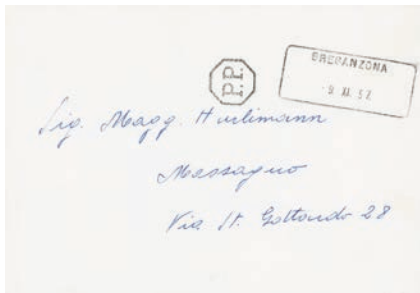 P.P.
BREGANZONA
-9 XI. 57
Sig. Magg. Hurlimann
Massagno
Via St. Gottardo 28